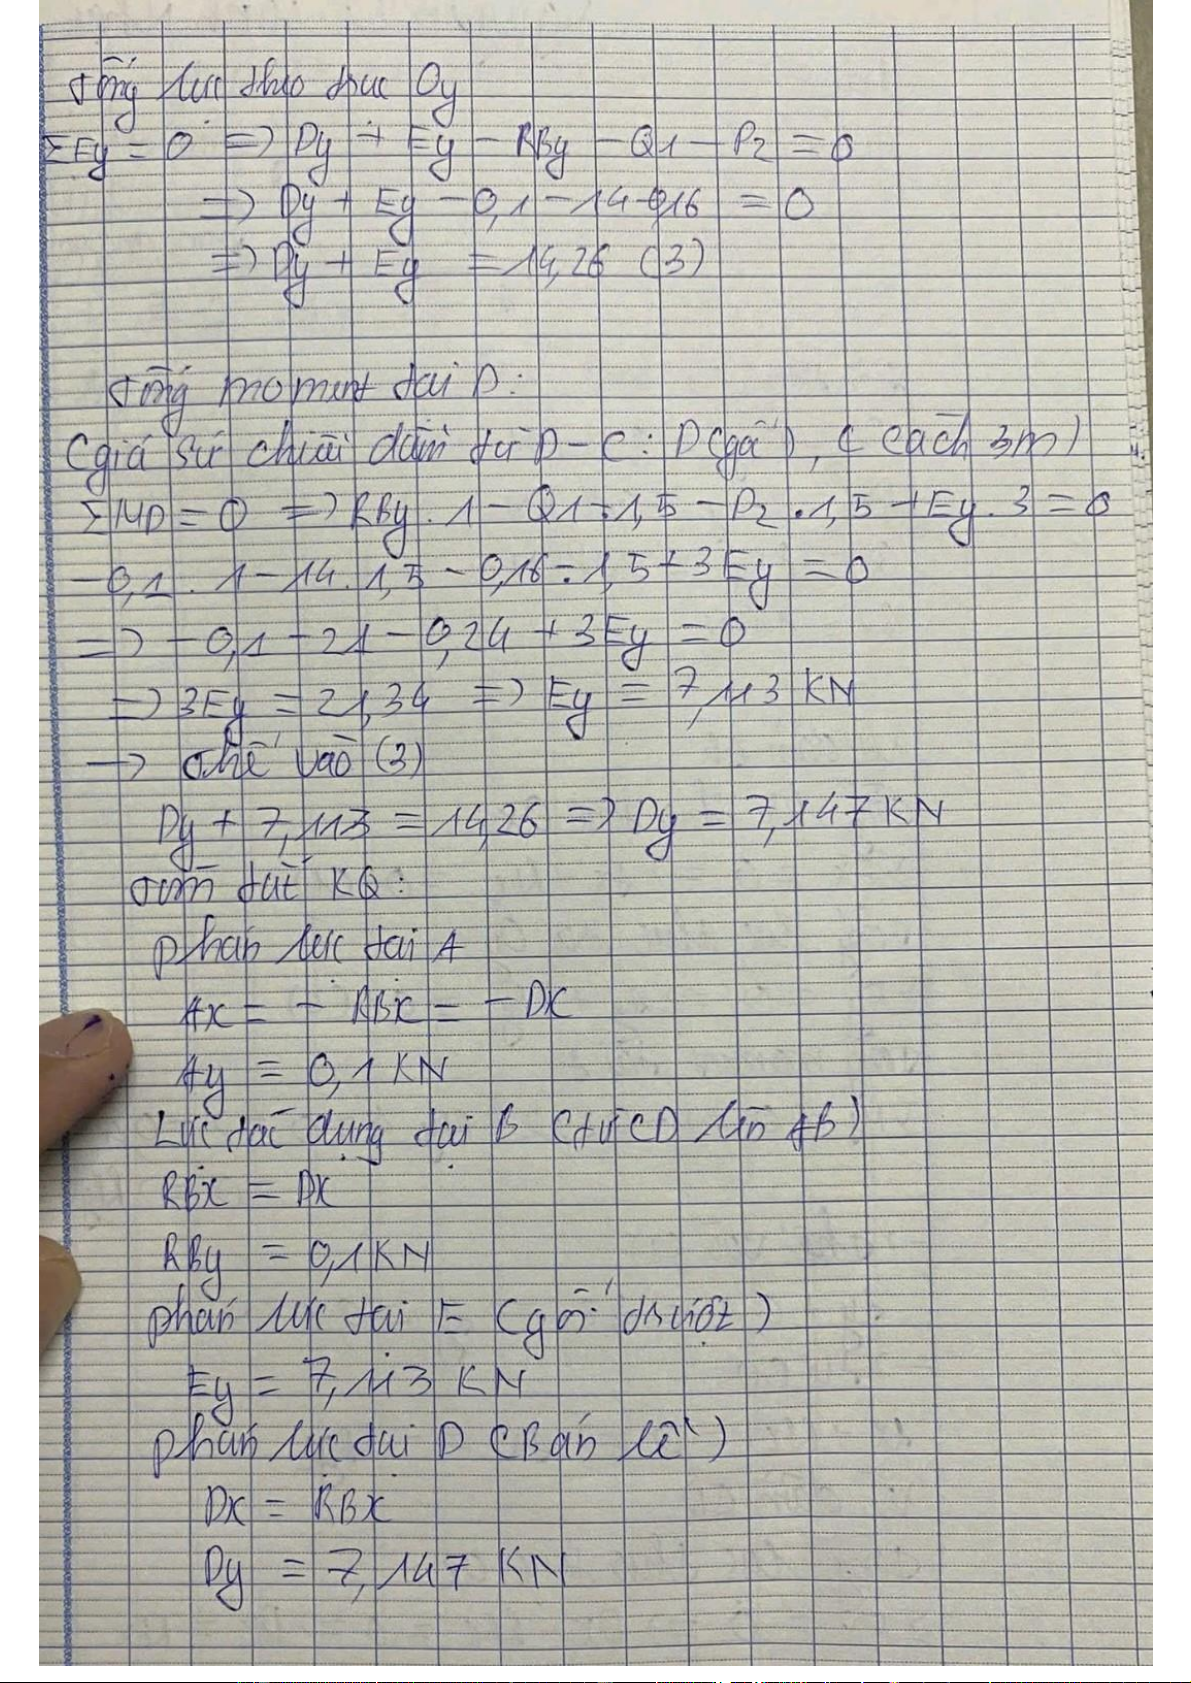 Tổng lực theo trục Oy
ΣFy = 0 => Dy + Ey - RBy - Q1 - P2 = 0
=> Dy + Ey - 0,1 - 14 - 0,16 = 0
=> Dy + Ey = 14,26 (3)
Tổng moment tại D:
(giả sử chiều dài từ D-C: D(gối), C cách 3m)
ΣMD = 0 => RBy . 1 - Q1 . 1,5 - P2 . 1,5 + Ey . 3 = 0
-0,1 . 1 - 14 . 1,5 - 0,16 . 1,5 + 3Ey = 0
=> -0,1 - 21 - 0,24 + 3Ey = 0
=> 3Ey = 21,34 => Ey = 7,113 KN
-> thế vào (3)
Dy + 7,113 = 14,26 => Dy = 7,147 KN
tóm tắt KQ:
phản lực tại A
Ax = - RBx = - Dx
Ay = 0,1 KN
Lực tác dụng tại B (từ CD lên AB)
RBx = Dx
RBy = 0,1 KN
phản lực tại E (gối trượt)
Ey = 7,113 KN
phản lực tại D (Bản lề)
Dx = RBx
Dy = 7,147 KN